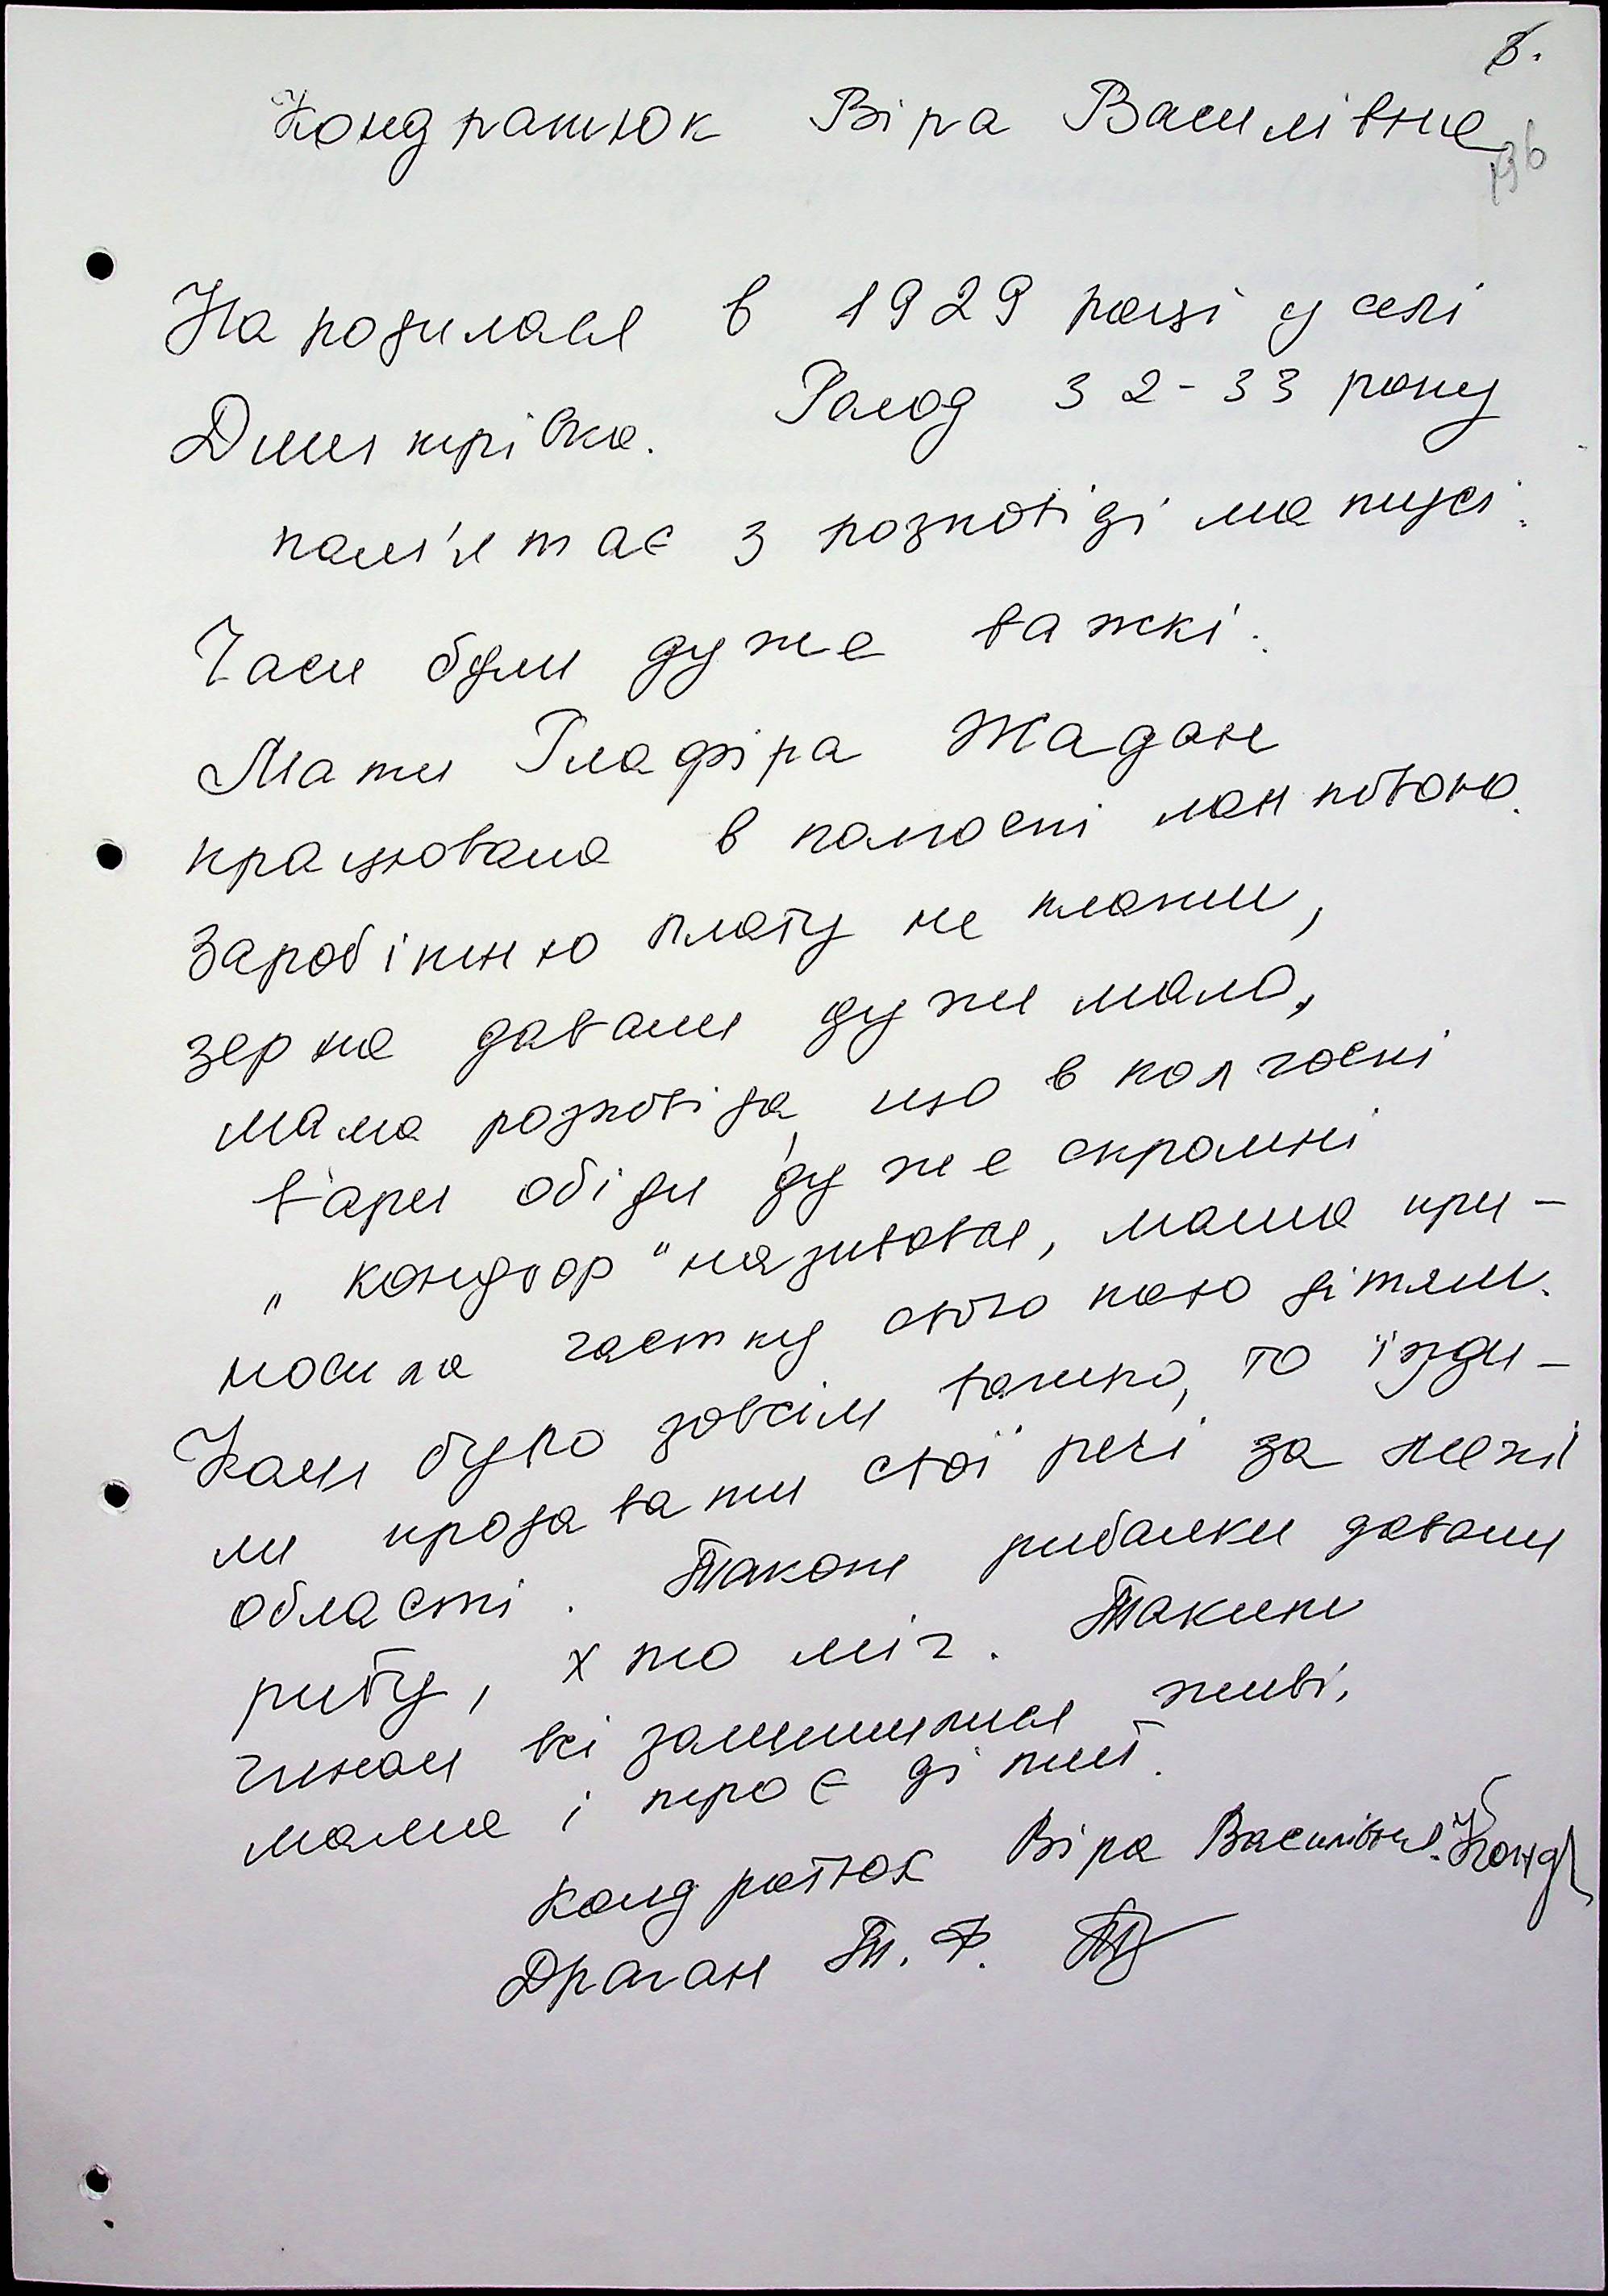 8.
Кондратюк Віра Василівна
196
Народилася в 1929 році у селі
Дмитрівка. Голод 32-33 року
пам'ятає з розповіді матусі.
Часи були дуже важкі.
Мати Глафіра Жадан
працювала в колгоспі ланковою.
Заробітню плату не платили,
зерна давали дужи мало,
мама розповіда, що в колгоспі
варили обіди дуже скромні
„кондьор" називався, мама при-
носила частку свого паю дітям.
Коли було зовсім важко, то їзди-
ли продавати свої речі за межі
області. Також рибалки давали
рибу, хто міг. Таким
чином всі залишилися живі,
мама і троє дітей.
Кондратюк Віра Василівна. Конд
Драган Т. Ф.